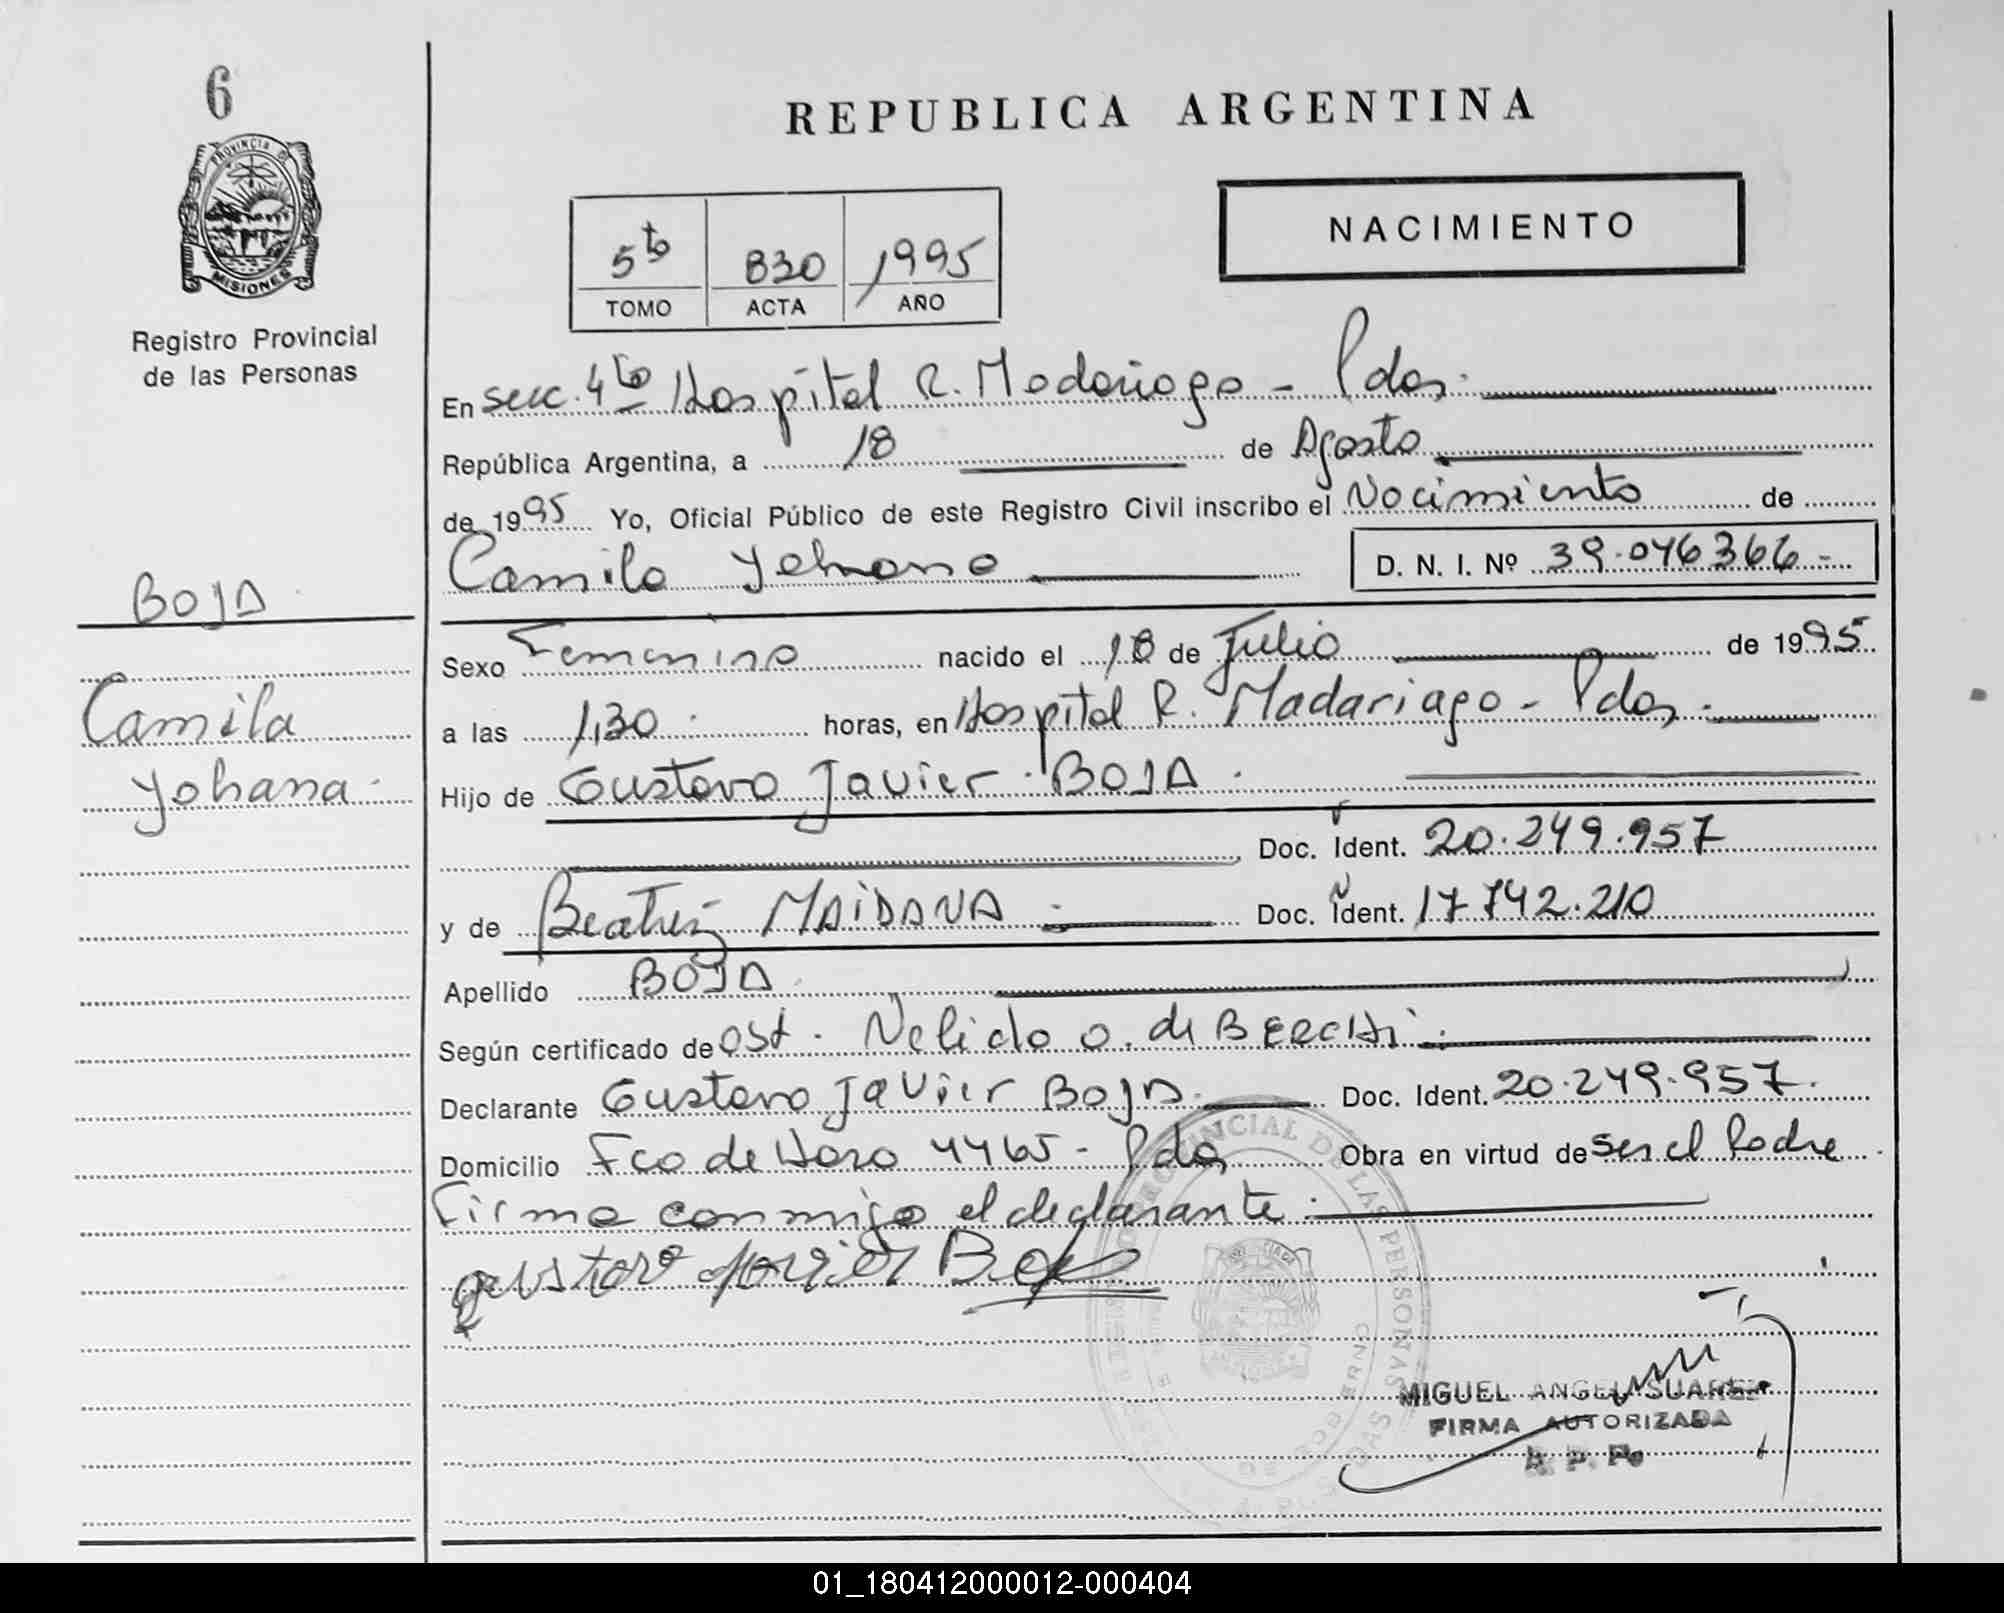 6
PROVINCIA DE
MISIONES
Registro Provincial
de las Personas
REPUBLICA ARGENTINA
NACIMIENTO
5to 830 1995
TOMO ACTA AÑO
En secc. 4ta Hospital R. Madariaga - Pdas.
República Argentina, a 18 de Agosto
de 1995 Yo, Oficial Público de este Registro Civil inscribo el Nacimiento de
Camila Yohana D. N. I. Nº 39.046366-
BOJA
Camila
Yohana
Sexo Femenino nacido el 18 de Julio de 1995
a las 1,30 horas, en Hospital R. Madariaga - Pdas.
Hijo de Gustavo Javier BOJA
Doc. Ident. 20.249.957
y de Beatriz MAIDANA Doc. Ident. 17.742.210
Apellido BOJA
Según certificado de Obst. Nelida O. de BERCHI
Declarante Gustavo Javier BOJA Doc. Ident. 20.249.957
Domicilio Fco de Haro 4465 - Pdas Obra en virtud de ser el Padre
Firma conmigo el declarante
gustavo javier Boja
MIGUEL ANGEL SUAREZ
FIRMA AUTORIZADA
R. P. P.
01_180412000012-000404